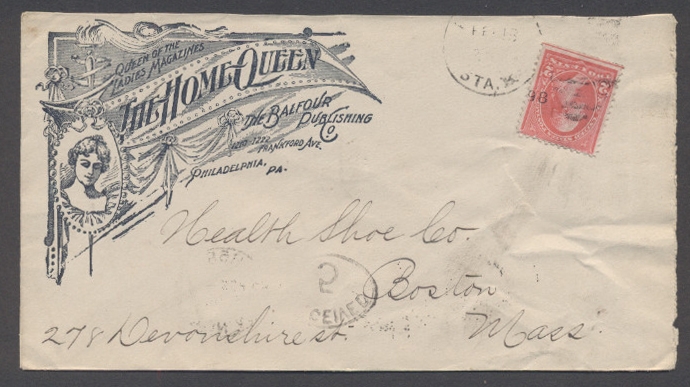 QUEEN OF THE
LADIES MAGAZINES
THE HOME QUEEN
THE BALFOUR
PUBLISHING
Co
FRANKFORD AVE.
PHILADELPHIA,
PA.
STA.
98
Health Shoe Co.
2
CEIVED
Boston
278 Devonshire st.
Mass